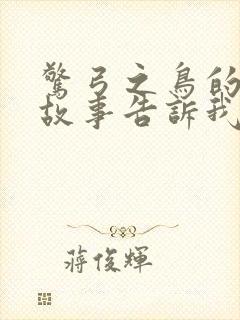 驚弓之鳥的
故事告訴我
蔣俊輝